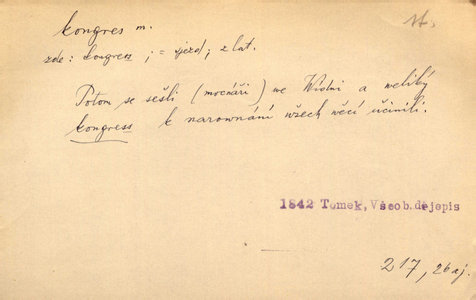 kongres m. st.
zde: kongress; = sjezd; z lat.
Potom se sešli (mocnáři) we Wídni a weliký
kongress k narownání wšech wěcí učinili.
1842 Tomek, Všeob. dějepis
217, 26 aj.